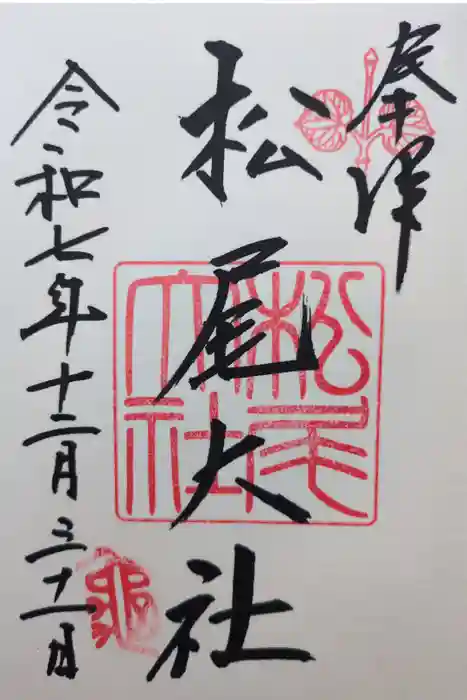 奉拝
松尾大社
令和七年十二月三十一日
松尾大社